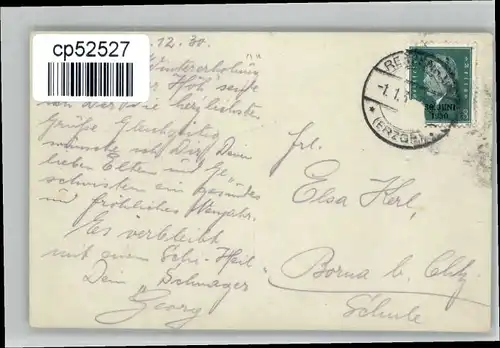 cp52527
.12.30.
Wintererholung
Höh' sende
ich Dir die herzlichsten
Grüße. Gleichzeitig
wünsche ich Dir, Deinen
lieben Eltern und Ge-
schwistern ein gesundes
und fröhliches Neujahr.
Es verbleibt
mit einem Schi-Heil
Dein Schwager
Georg
Frl.
Elsa Kerl,
Borna b. Chtz.
Schule
-1.1.3
(ERZGEB
30. JUNI
1930